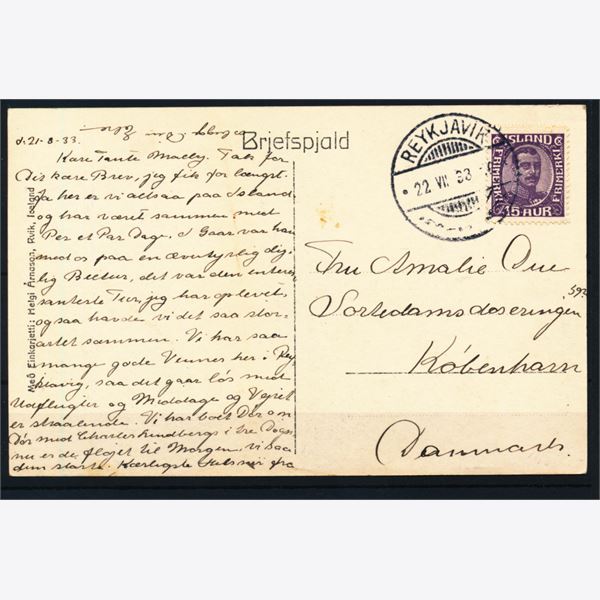 Brjefspjald
REYKJAVIK
22 VII 33
ISLAND
FRIMERKI
FRIMERKI
15 AUR
Með Einkarjetti: Helgi Árnason, Rvík, Iceland
d. 21-8-33.
Kære Tante Maelly. Tak for
Dit kære Brev, jeg fik for længst.
Ja her er vi altsaa paa Island
og har været sammen med
Per et Par Dage, i Gaar var han
med os paa en æventyrlig dej-
lig Biltur, det var den interes-
santeste Tur, jeg har oplevet,
ogsaa havde vi det saa stor-
artet sammen. Vi har saa
mange gode Venner her i Rey
kjavig, saa det gaar løs med
Udflugter og Middage og Vejret
er straalende. Vi har boet Dør om
Dør med Charles Lindbergs i tre Dage
nu er de fløjet til Morgen, vi saa
dem starte. Kærligste Hilsner fra
Fru Amalie Due
Sortedamsdosseringen
København
Danmark.